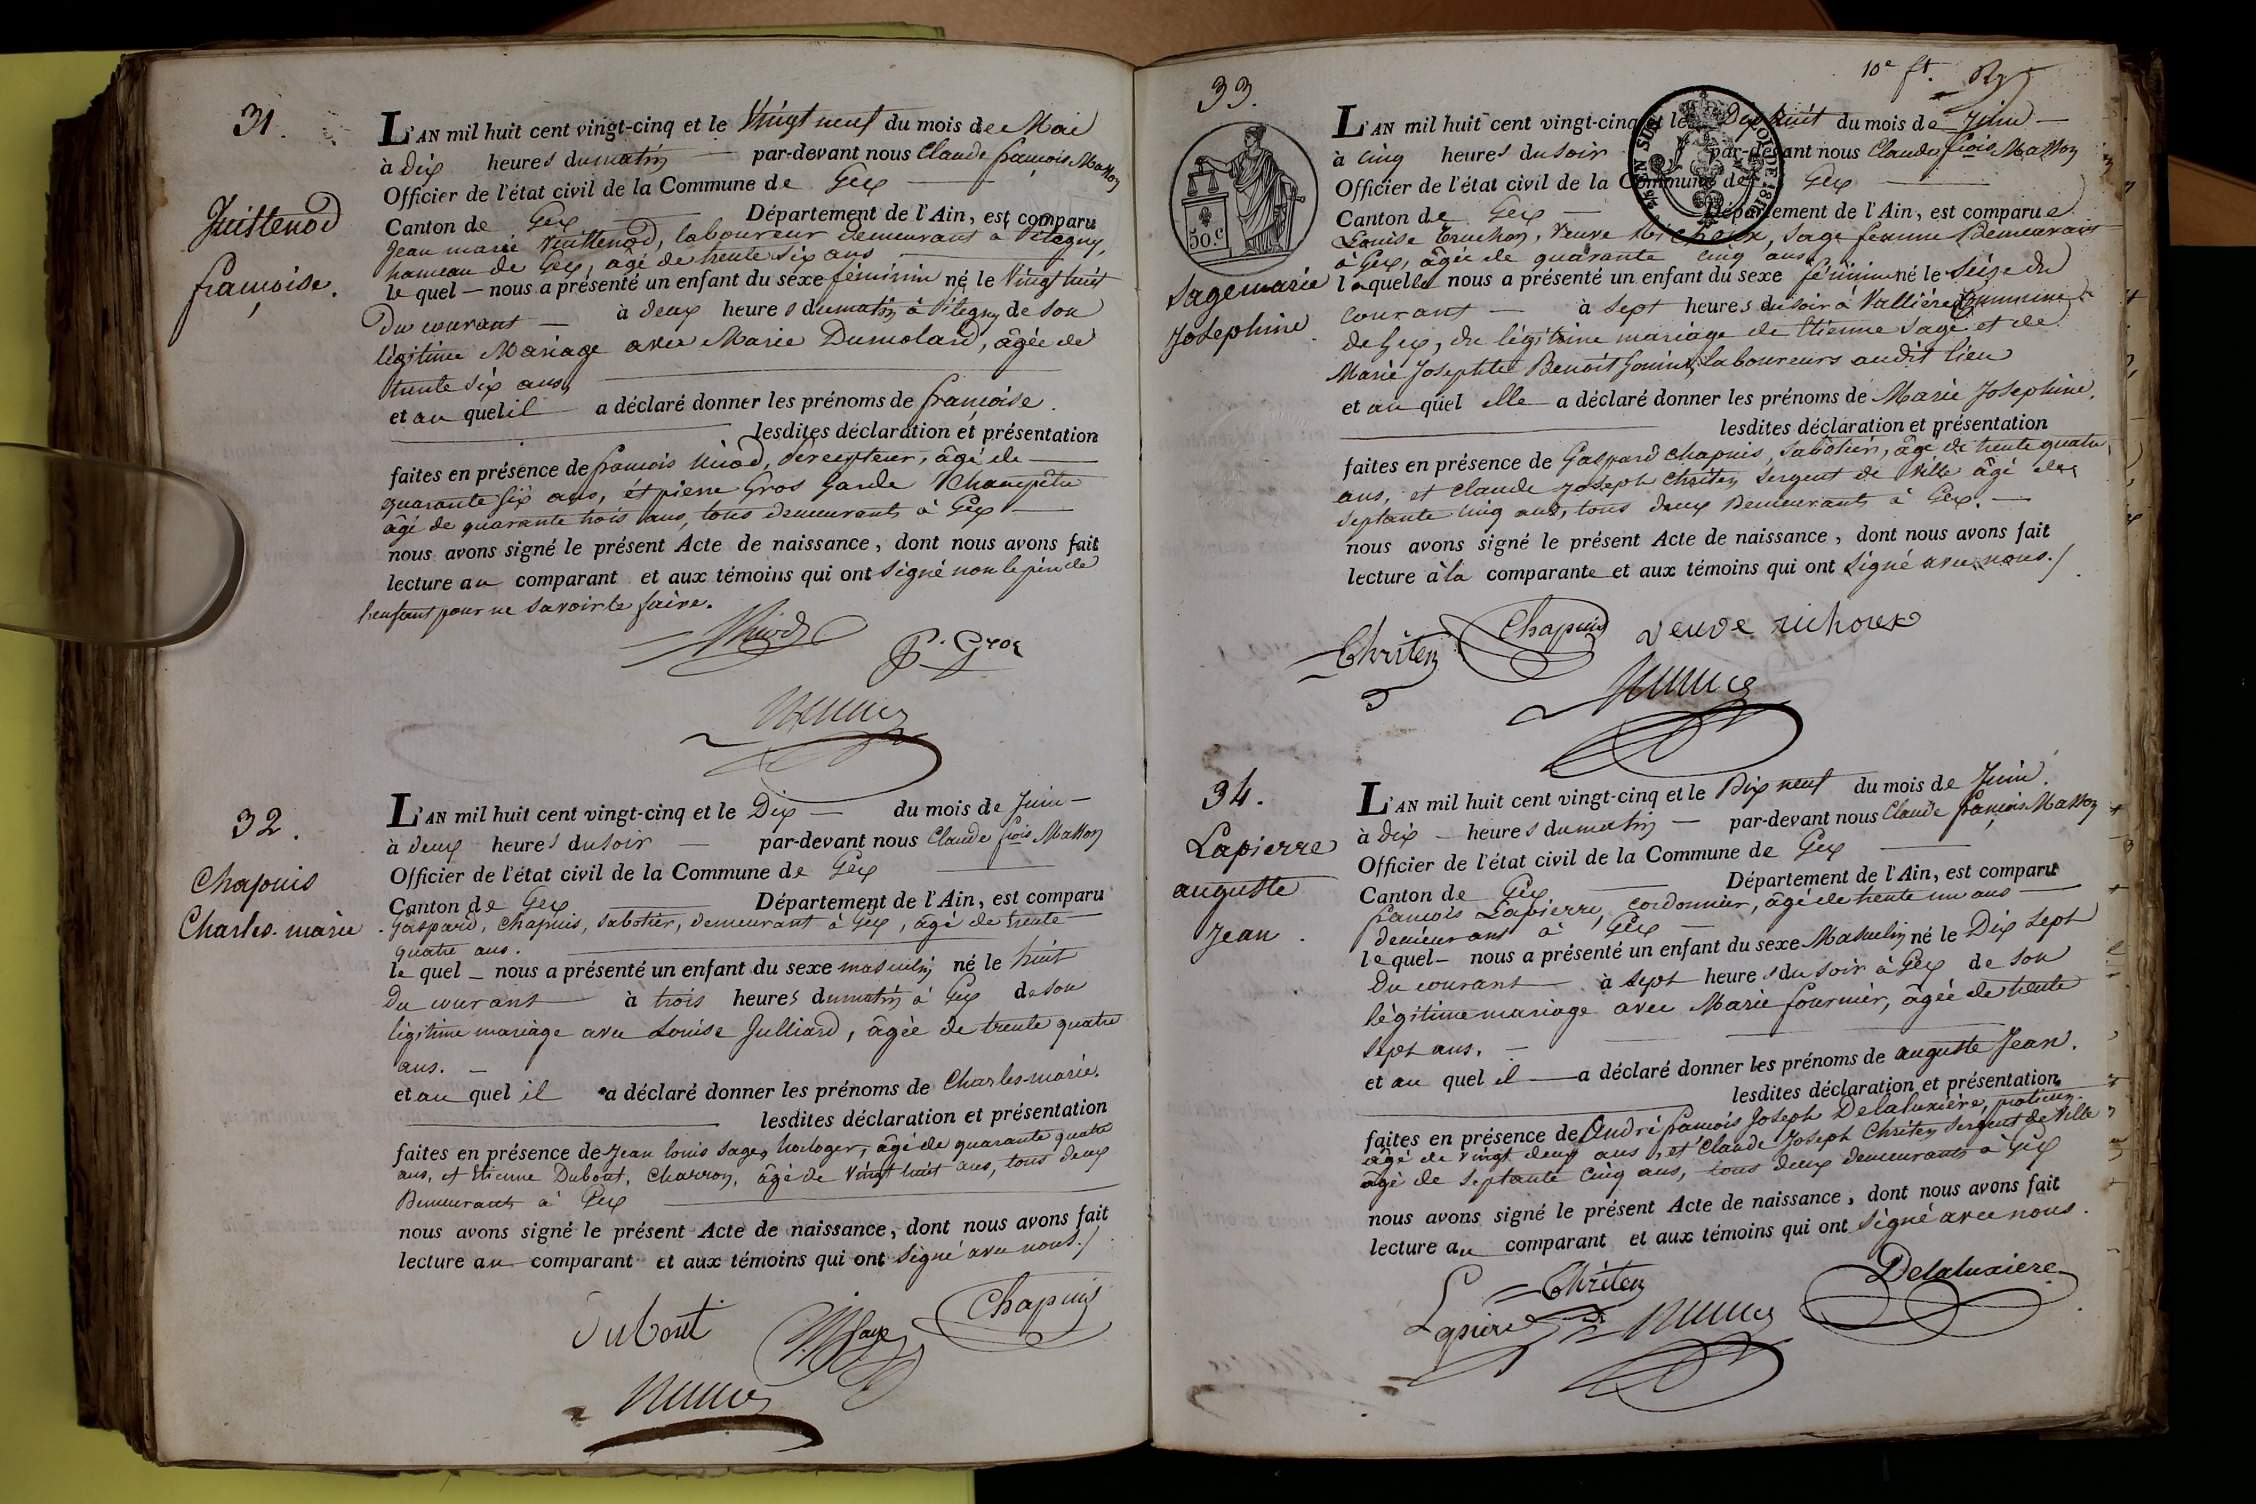 31.
Vuittenod
françoise.
L'AN mil huit cent vingt-cinq et le Vingt neuf du mois de Mai
à dix heures du matin par-devant nous Claude françois Masson
Officier de l'état civil de la Commune de Gex
Canton de Gex Département de l'Ain, est comparu
Jean marie Vuittenod, laboureur demeurant à Pitegny,
hameau de Gex, agé de trente six ans
le quel nous a présenté un enfant du sexe féminin né le Vingt huit
Du courant à deux heures du matin à Pitegny de son
légitime Mariage avec Marie Dumolard, âgée de
trente six ans,
et au quel il a déclaré donner les prénoms de françoise.
lesdites déclaration et présentation
faites en présence de françois Niod, percepteur, âgé de
quarante six ans, et pierre Gros Garde Champêtre
âgé de quarante trois ans, tous demeurants à Gex
nous avons signé le présent Acte de naissance, dont nous avons fait
lecture au comparant et aux témoins qui ont signé non le père de
l'enfant pour ne savoir le faire.
Niod
P. Gros
32.
Chapuis
Charles-marie
L'AN mil huit cent vingt-cinq et le Dix du mois de Juin
à deux heures du soir par-devant nous Claude fcois Masson
Officier de l'état civil de la Commune de Gex
Canton de Gex Département de l'Ain, est comparu
Gaspard, Chapuis, sabotier, demeurant à Gex, âgé de trente
quatre ans.
le quel nous a présenté un enfant du sexe masculin né le huit
du courant à trois heures du matin à Gex de son
légitime mariage avec Louise Julliard, âgée de trente quatre
ans.
et au quel il a déclaré donner les prénoms de Charles-marie.
lesdites déclaration et présentation
faites en présence de Jean louis Sage, horloger, âgé de quarante quatre
ans, et Etienne Dubout, Charron, âgé de Vingt huit ans, tous deux
Demeurants à Gex
nous avons signé le présent Acte de naissance, dont nous avons fait
lecture au comparant et aux témoins qui ont signé avec nous./.
Dubout
Sage
Chapuis
10e ft.
33.
50.c
Sage marie
Josephine.
L'AN mil huit cent vingt-cinq et le Dix huit du mois de Juin
à cinq heures du soir par-devant nous Claude fcois Masson
Officier de l'état civil de la Commune de Gex
Canton de Gex Département de l'Ain, est comparue
Louise Truchon, Veuve Richoux, sage femme Demeurant
à Gex, âgée de quarante cinq ans
laquelle nous a présenté un enfant du sexe féminin né le Seize du
courant à sept heures du soir à Vallière Commune
de Gex, du légitime mariage de Etienne Sage et de
Marie Josephte Benoit Gonin, laboureurs audit lieu
et au quel elle a déclaré donner les prénoms de Marie Josephine.
lesdites déclaration et présentation
faites en présence de Gaspard Chapuis, sabotier, âgé de trente quatre
ans, et Claude Joseph Chriten Sergent de Ville âgé de
septante cinq ans, tous deux Demeurants à Gex.
nous avons signé le présent Acte de naissance, dont nous avons fait
lecture à la comparante et aux témoins qui ont signé avec nous./.
Chriten
Chapuis
veuve richoux
34.
Lapierre
auguste
Jean.
L'AN mil huit cent vingt-cinq et le Dix neuf du mois de Juin.
à dix heures du matin par-devant nous Claude françois Masson
Officier de l'état civil de la Commune de Gex
Canton de Gex Département de l'Ain, est comparu
françois Lapierre, cordonnier, âgé de trente un ans
demeurant à Gex
le quel nous a présenté un enfant du sexe Masculin né le Dix sept
Du courant à sept heures du soir à Gex de son
légitime mariage avec Marie fournier, âgée de trente
sept ans.
et au quel il a déclaré donner les prénoms de auguste Jean.
lesdites déclaration et présentation
faites en présence de André françois Joseph Delaluxière, praticien
âgé de vingt deux ans, et Claude Joseph Chriten Sergent de Ville
âgé de septante cinq ans, tous deux demeurants à Gex
nous avons signé le présent Acte de naissance, dont nous avons fait
lecture au comparant et aux témoins qui ont signé avec nous.
Lapierre
Chriten
Delaluxiere